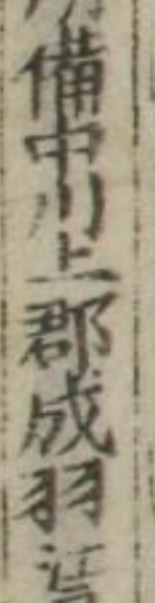 備中川上郡成羽